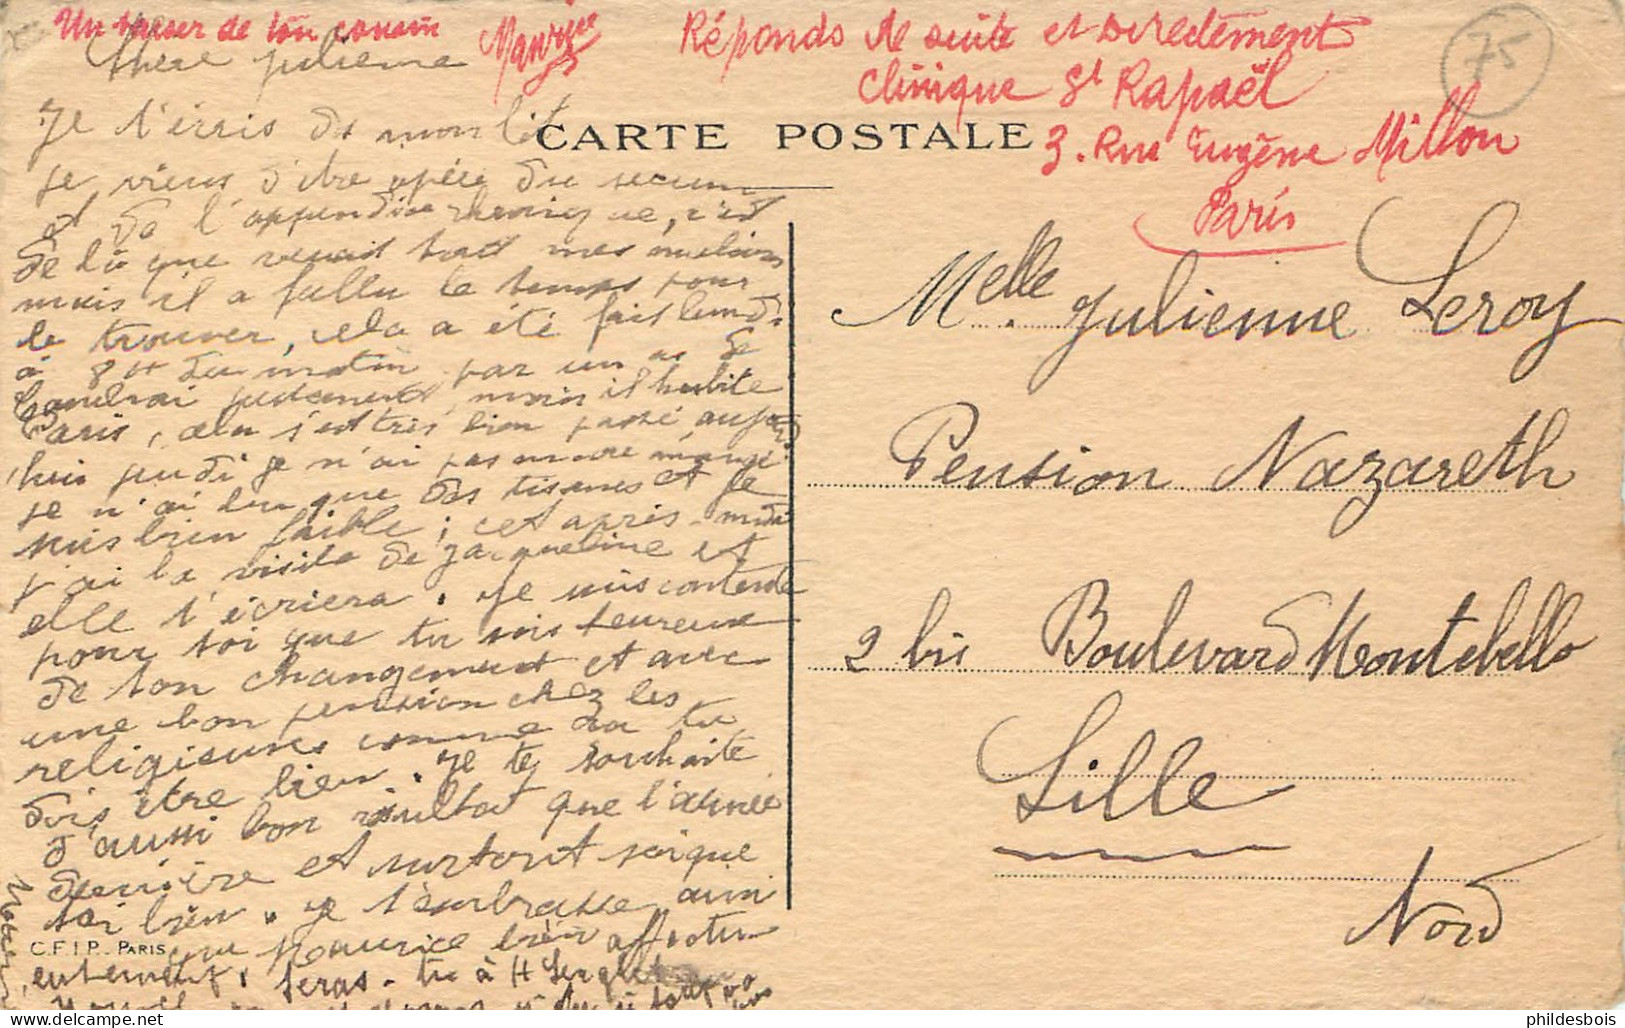 Un baiser de ton cousin
Maurice
Réponds de suite et Directement
Clinique St Rapaël
3. Rue Eugène Millon
Paris
75
CARTE POSTALE
Chère Julienne
Je t'écris de mon lit
je viens d'être opéré du
et de l'appendice chronique, c'est
de là que venait tout mes
mais il a fallu le temps pour
le trouver, cela a été fait lundi
à 8H du matin par un as de
justement, mais il habite
Paris, cela s'est très bien passé aujourd
hui jeudi je n'ai pas encore mangé
je n'ai bu que des tisanes et je
suis bien faible ; cet après-midi
j'ai la visite de Jacqueline et
elle t'écriera. Je suis contente
pour toi que tu sois heureuse
de ton changement et avec
une bon pension chez les
religieuses comme ça tu
dois être bien. Je te souhaite
d'aussi bon résultat que l'année
dernière et surtout soigne
toi bien. Je t'embrasse ainsi
que Maurice bien affectu
eusement. Seras-tu à H
Melle Julienne Leroy
Pension Nazareth
2 bis Boulevard Montebello
Lille
Nord
C.F.I.P. PARIS
http://www.delcampe.net
phildesbois